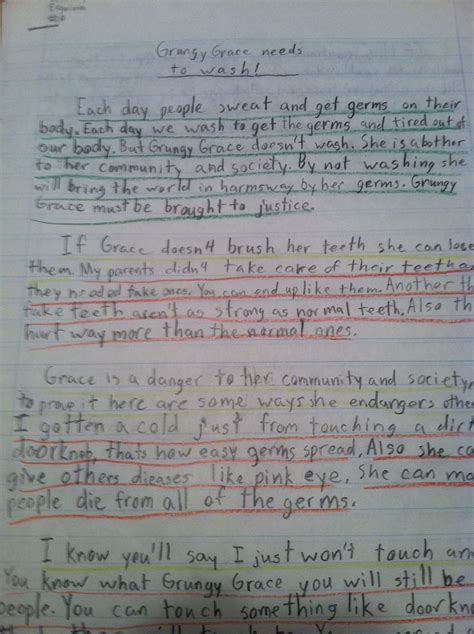 Grungy Grace needs
to wash!
Each day people sweat and get germs on their
body. Each day we wash to get the germs and tired out of
our body. But Grungy Grace doesn't wash. She is abother
to her community and society. By not washing she
will bring the world in harmsway by her germs. Grungy
Grace must be brought to justice.
If Grace doesn't brush her teeth she can lose
them. My parents didn't take care of their teeth an
they needed fake ones. You can end up like them. Another th
fake teeth aren't as strong as normal teeth. Also th
hurt way more than the normal ones.
Grace is a danger to her community and society,
to prove it here are some ways she endangers othe
I gotten a cold just from touching a dirt
doorknob, thats how easy germs spread. Also she ca
give others dieases like pink eye. She can ma
people die from all of the germs.
I know you'll say I just won't touch an
You know what Grungy Grace you will still be
people. You can touch something like doorkn